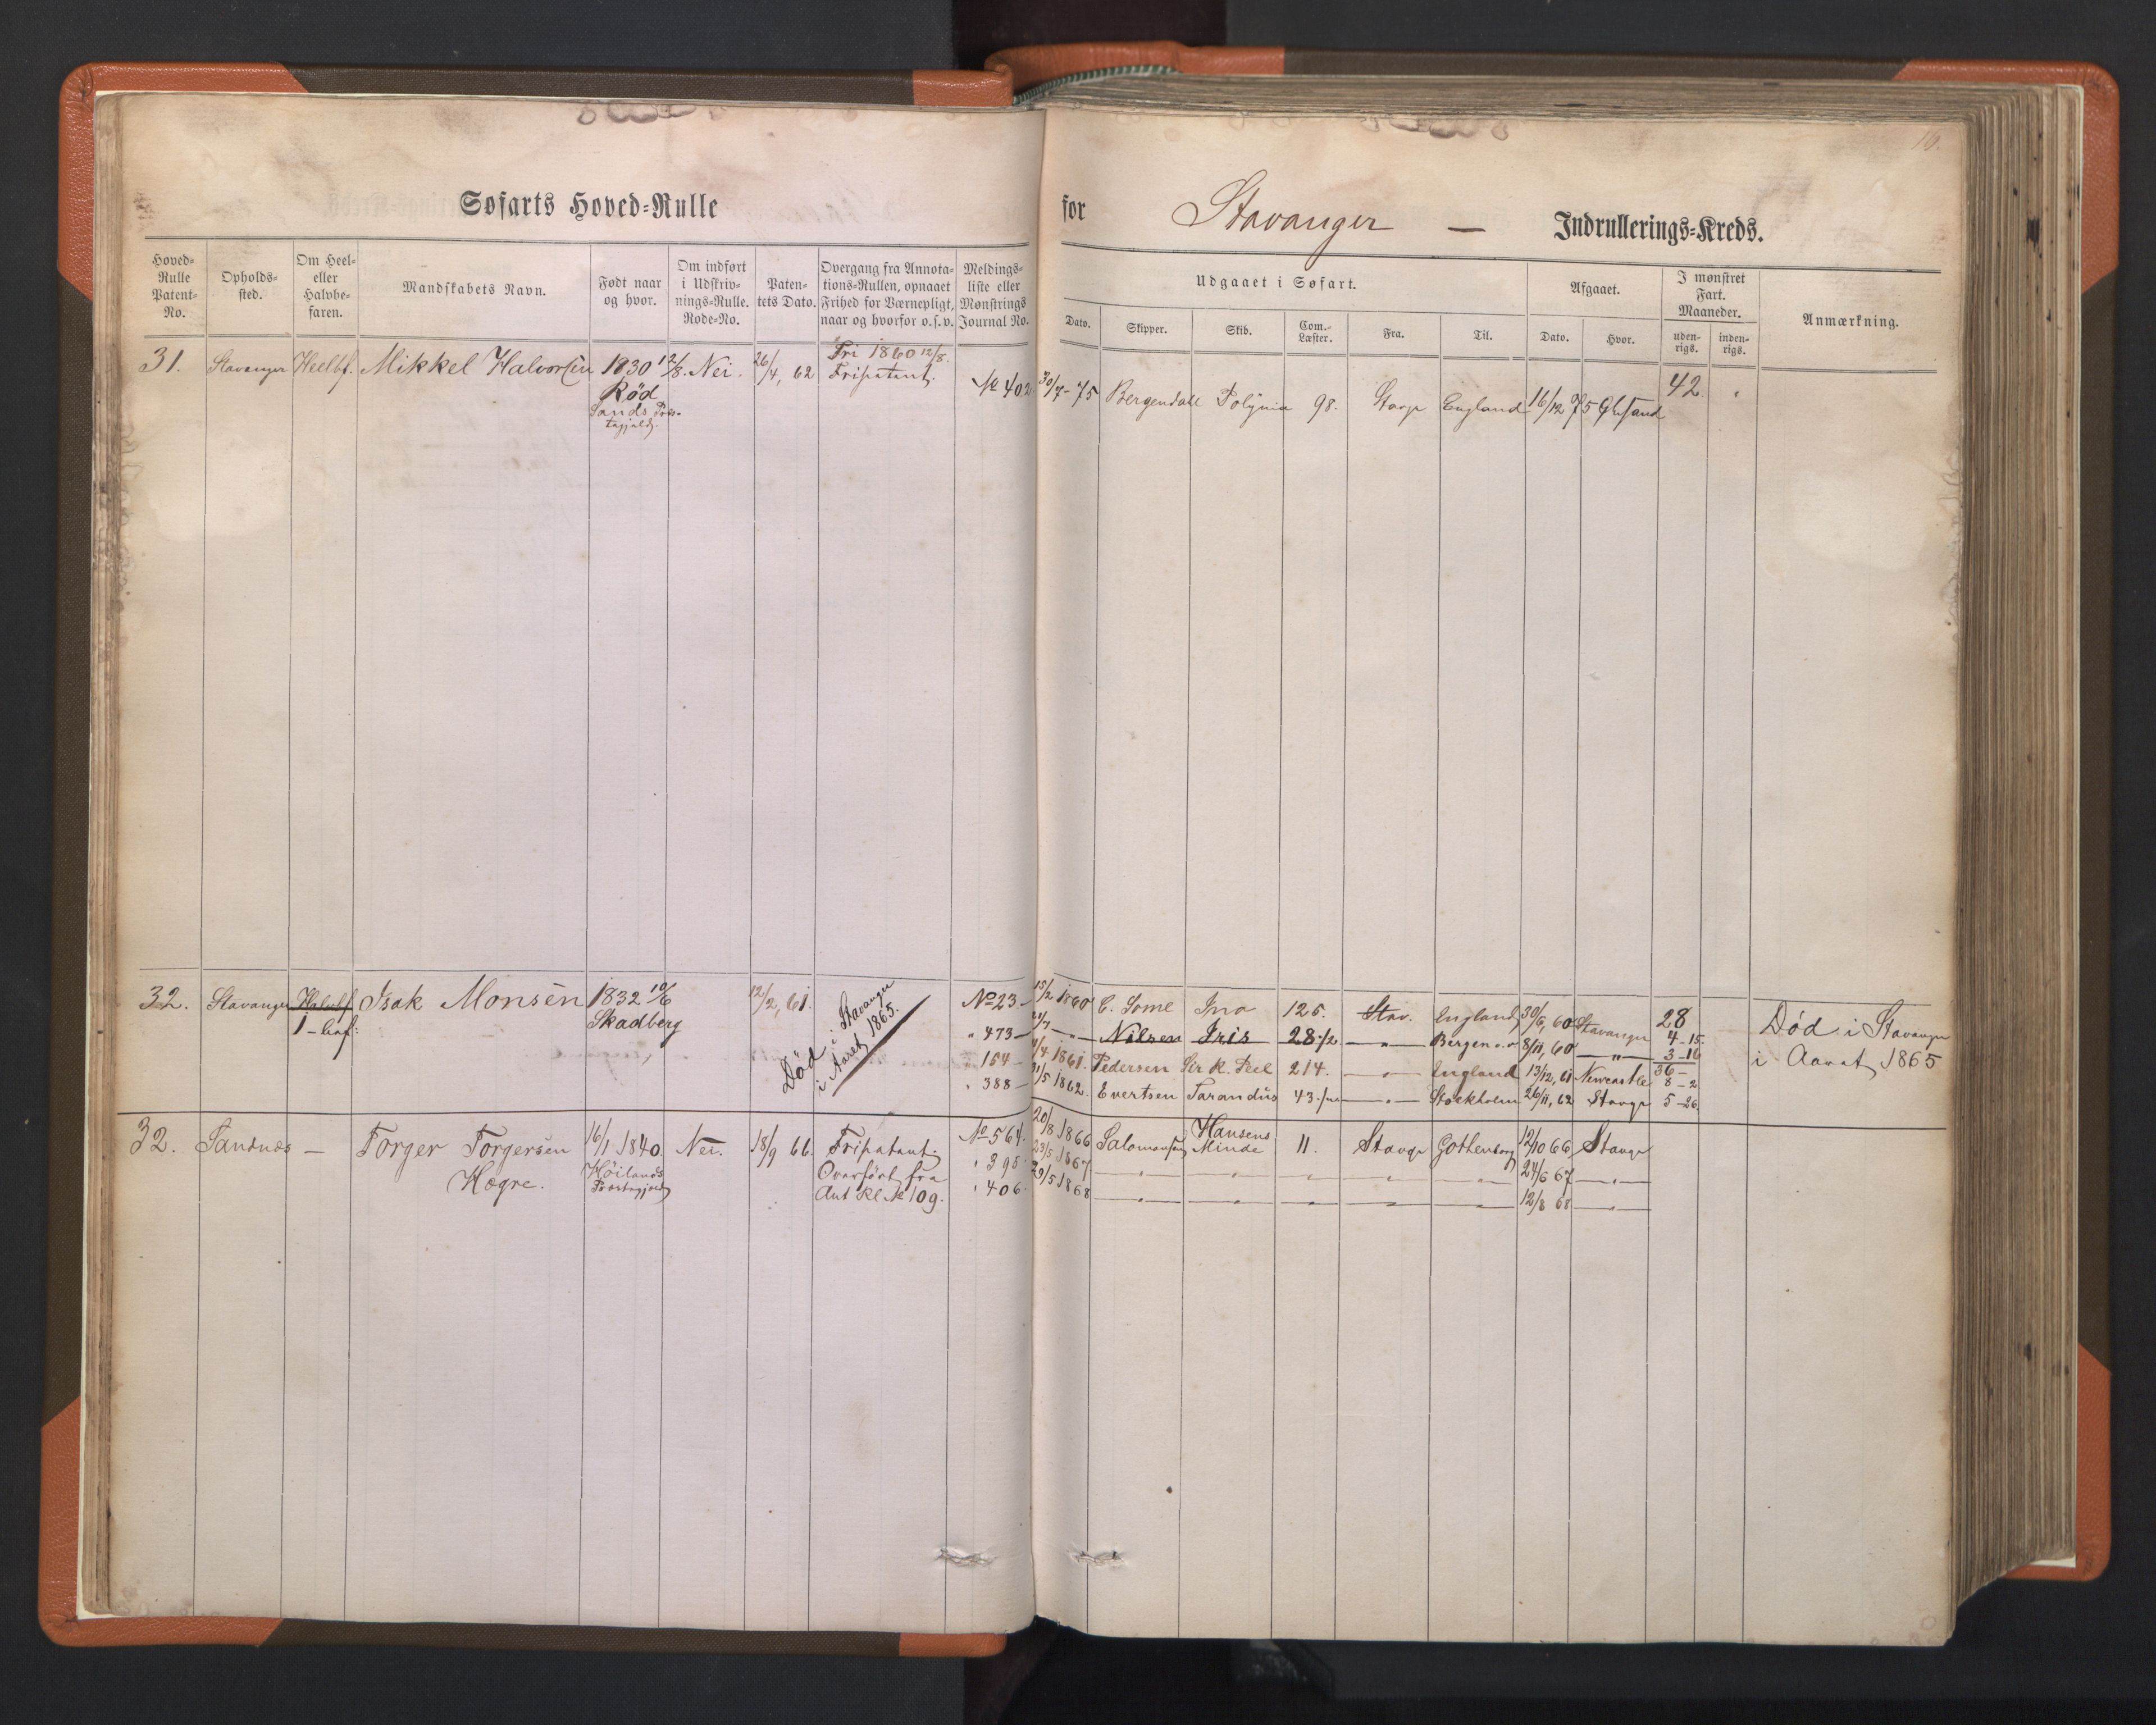 16.
Søfarts Hoved-Rulle for Stavanger — Indrullerings-Kreds.
Hoved-Rulle Patent-No.
Opholds-sted.
Om Heel- eller Halvbe-faren.
Mandskabets Navn.
Født naar og hvor.
Om indført i Udskriv-nings-Rulle. Rode-No.
Paten-tets Dato.
Overgang fra Annota-tions-Rullen, opnaaet Frihed for Værnepligt, naar og hvorfor o.s.v.
Meldings-liste eller Mønstrings Journal No.
Udgaaet i Søfart.
Dato. Skipper. Skib. Com.-Læster. Fra. Til.
Afgaaet.
Dato. Hvor.
I mønstret Fart. Maaneder.
uden-rigs. inden-rigs.
Anmærkning.
31. Stavanger Heelbf. Mikkel Halvorsen 1830 12/8. Nei. 26/4, 62 Fri 1860 12/8.
Rød Fripatent.
Sands Præs-
tegjeld.
No 402 30/7-75 Bergendall Polynia 98. Stavgr England 16/12 75 42
32. Stavanger Halvbf. Isak Monsen 1832 10/6 12/2, 61.
1-bef: Skadberg
Død i Stavanger
i Aaret 1865.
No 23- 15/2 1860 C. Some Ino 126. Stav. England 30/6, 60 Stavanger 28
" 473- — Nilsen Iris 28 1/2 —"— Bergen 8/11, 60 —"— 4-15.
3-16
" 154- 4/4 1861. Pedersen Sir R. Peel 214. —"— England 13/12, 61 Newcastle 36-
8-2
" 388- 31/5 1862. Evertsen Tarandus 43. —"— Stockholm 26/11, 62 Stavgr 5-26.
Død i Stavanger
i Aaret 1865
32. Sandnes — Torger Torgersen 16/1 1840. Nei. 18/9 66. Fripatent.
Høgre. Høilands Overført fra
Præstegjeld Ant Rl. No 109.
No 564. 20/8 1866 Salomonsen Hansens Minde 11. Stavgr Gothenborg 12/10 66 Stavgr
" 395. 23/5 1867 —"— —"— —"— —"— —"— 24/6 67 —"—
" 406. 29/5 1868 —"— —"— —"— —"— —"— 12/8 68 —"—